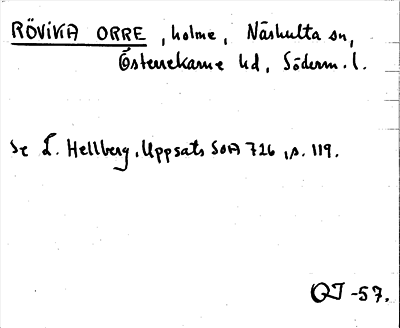 RÖVIKA ORRE, holme, Näshulta sn,
Österrekarne hd, Söderm. l.
Se L. Hellberg, Uppsats SOA 726, s. 119.
OJ -57.